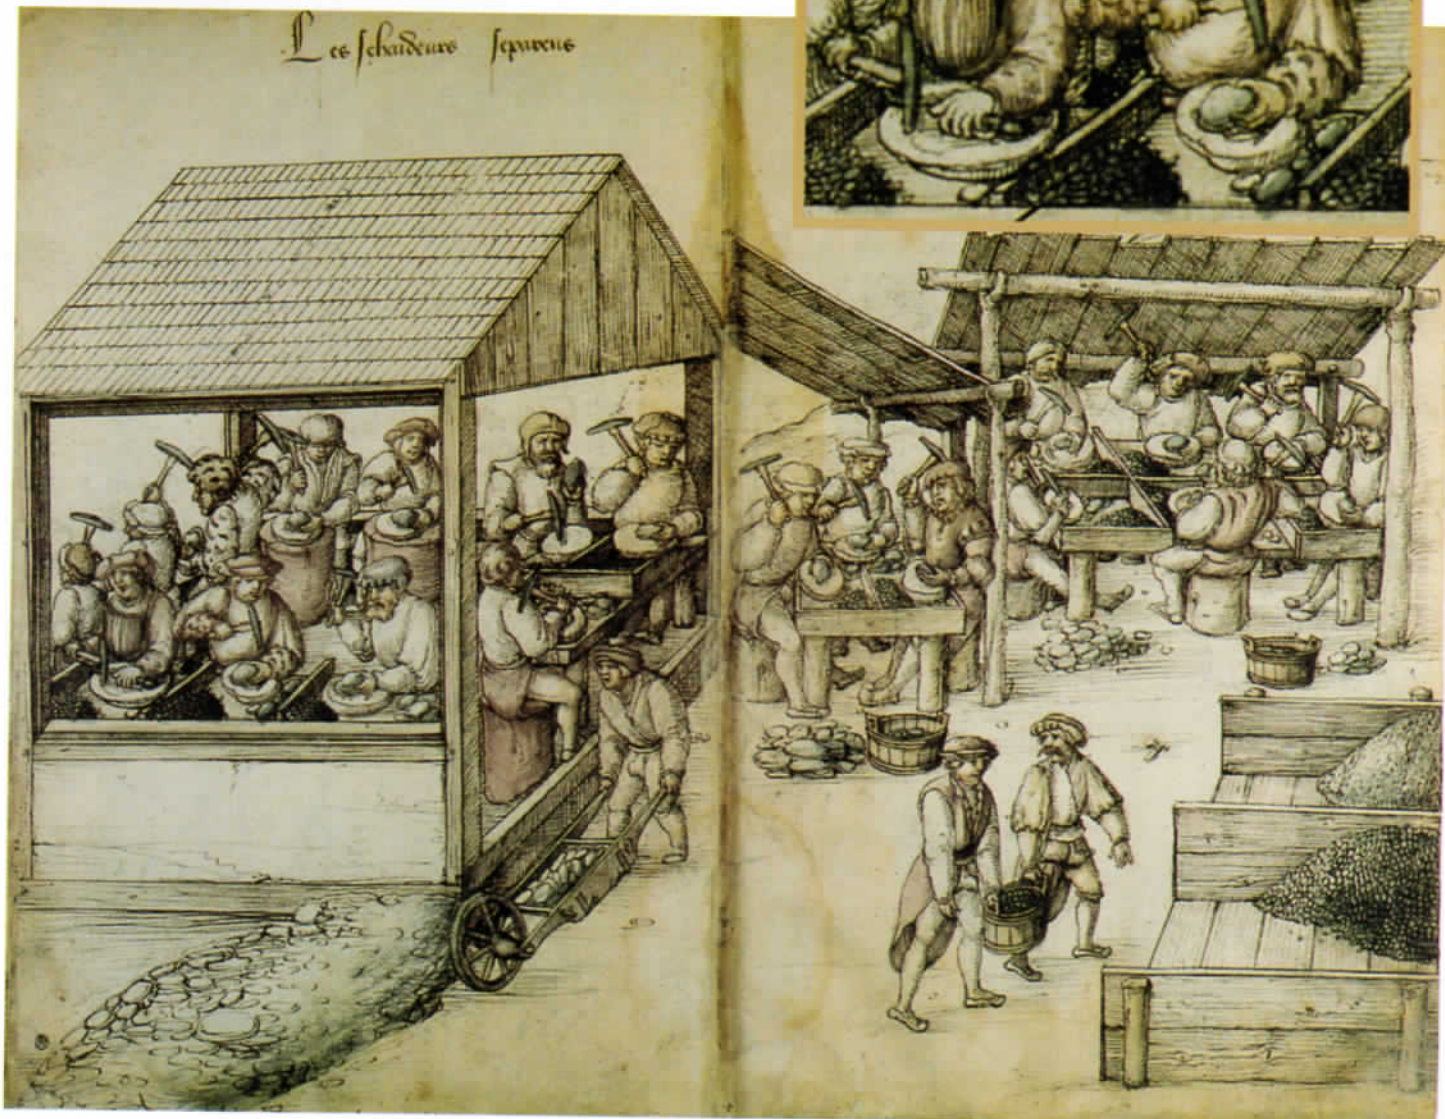 Les schaideurs separens